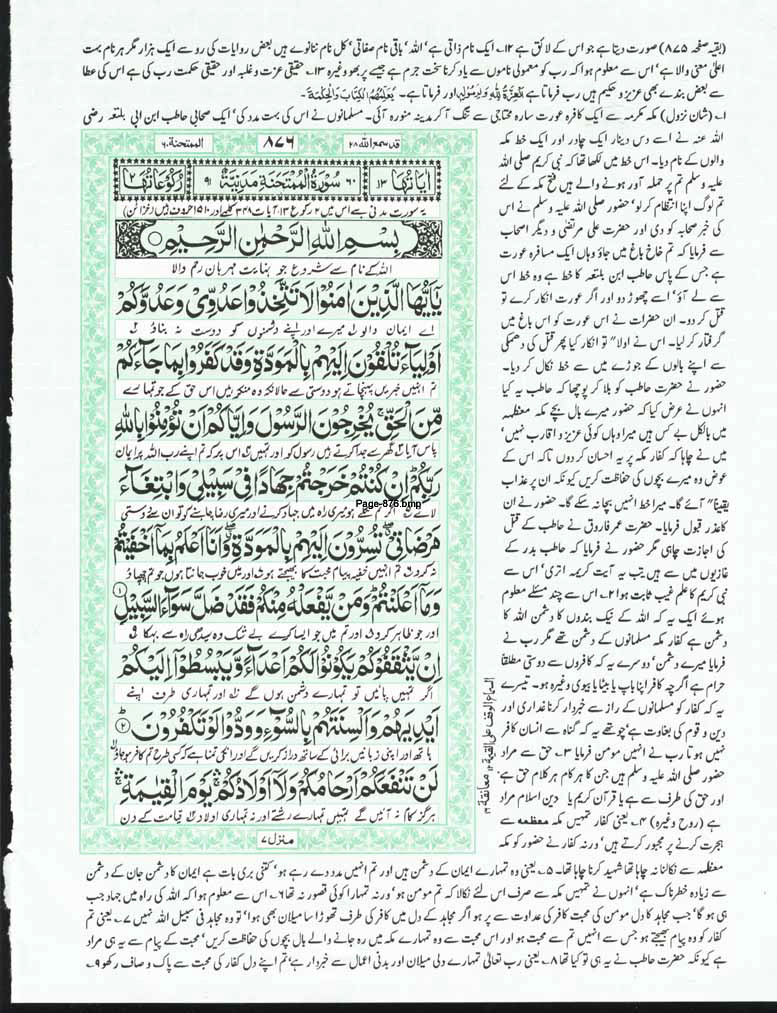 (بقیہ صفحہ ۸۷۵) صورت دیتا ہے جو اس کے لائق ہے ۱۲۔ ایک نام ذاتی ہے' اللہ' باقی نام صفاتی' کل نام ننانوے ہیں بعض روایات کی رو سے ایک ہزار مگر ہر نام بہت
اعلیٰ معنی والا ہے' اس سے معلوم ہوا کہ رب کو معمولی ناموں سے یاد کرنا سخت جرم ہے جیسے پربھو وغیرہ ۱۳۔ حقیقی عزت و غلبہ اور حقیقی حکمت رب کی ہے اس کی عطا
سے بعض بندے بھی عزیز و حکیم ہیں رب فرماتا ہے وَلِلّٰهِ الْعِزَّةُ وَلِرَسُوْلِهٖ اور فرماتا ہے۔ يُعَلِّمُهُمُ الْكِتَابَ وَالْحِكْمَةَ۔
۱۔ (شان نزول) مکہ مکرمہ سے ایک کافرہ عورت سارہ محتاجی سے تنگ آ کر مدینہ منورہ آئی۔ مسلمانوں نے اس کی بہت مدد کی' ایک صحابی حاطب ابن ابی بلتعہ رضی
اللہ عنہ نے اسے دس دینار ایک چادر اور ایک خط مکہ
والوں کے نام دیا۔ اس خط میں لکھا تھا کہ نبی کریم صلی اللہ
علیہ وسلم تم پر حملہ آور ہونے والے ہیں فتح مکہ کے لئے
تم لوگ اپنا انتظام کر لو' حضور صلی اللہ علیہ وسلم نے اس
کی خبر صحابہ کو دی اور حضرت علی مرتضی و دیگر اصحاب
سے فرمایا کہ تم خاخ باغ میں جاؤ وہاں ایک مسافرہ عورت
ہے جس کے پاس حاطب ابن بلتعہ کا خط ہے وہ خط اس
سے لے آؤ' اسے چھوڑ دو اور اگر عورت انکار کرے تو
قتل کر دو۔ ان حضرات نے اس عورت کو اس باغ میں
گرفتار کر لیا۔ اس نے اولاً تو انکار کیا پھر قتل کی دھمکی
سے اپنے بالوں کے جوڑے میں سے خط نکال کر دیا۔
حضور نے حضرت حاطب کو بلا کر پوچھا کہ حاطب یہ کیا
انہوں نے عرض کیا کہ حضور میرے بال بچے مکہ معظمہ
میں بالکل بے کس ہیں میرا وہاں کوئی عزیز و اقارب نہیں'
میں نے چاہا کہ کفار مکہ پر یہ احسان کر دوں تاکہ اس کے
عوض وہ میرے بچوں کی حفاظت کریں کیونکہ ان پر عذاب
یقیناً آئے گا۔ میرا خط انہیں بچا نہ سکے گا۔ حضور نے ان
کا عذر قبول فرمایا۔ حضرت عمر فاروق نے حاطب کے قتل
کی اجازت چاہی مگر حضور نے فرمایا کہ حاطب بدر کے
غازیوں میں سے ہیں تب یہ آیت کریمہ اتری' اس سے
نبی کریم کا علم غیب ثابت ہوا ۲۔ اس سے چند مسئلے معلوم
ہوئے ایک یہ کہ اللہ کے نیک بندوں کا دشمن اللہ کا
دشمن ہے کفار مکہ مسلمانوں کے دشمن تھے مگر رب نے
فرمایا میرے دشمن' دوسرے یہ کہ کافروں سے دوستی مطلقاً
حرام ہے اگرچہ کافر اپنا باپ یا بیٹا یا بیوی وغیرہ ہو۔ تیسرے
یہ کہ کفار کو مسلمانوں کے راز سے خبردار کرنا غداری اور
دین و قوم کی بغاوت ہے' چوتھے یہ کہ گناہ سے انسان کافر
نہیں ہوتا رب نے انہیں مومن فرمایا ۳۔ حق سے مراد
حضور صلی اللہ علیہ وسلم ہیں جن کا ہر کام ہر کلام حق ہے'
اور حق کی طرف سے ہے یا قرآن کریم یا دین اسلام مراد
ہے (روح وغیرہ) ۴۔ یعنی کفار تمہیں مکہ معظمہ سے
ہجرت کرنے پر مجبور کرتے ہیں' ورنہ کفار نے حضور کو مکہ
قد سمع اللہ ۲۸ ۸۷۶ الممتحنة ۶۰
اٰيَاتُهَا ۱۳ ۶۰ سُوْرَةُ الْمُمْتَحِنَةِ مَدَنِيَّةٌ ۹۱ رُكُوْعَاتُهَا ۲
یہ سورت مدنی ہے اس میں ۲ رکوع ۱۳ آیات ۳۴۸ کلمے اور ۱۵۱۰ حروف ہیں (خزائن)
بِسْمِ اللّٰهِ الرَّحْمٰنِ الرَّحِيْمِ
اللہ کے نام سے شروع جو نہایت مہربان رحم والا
يٰٓاَيُّهَا الَّذِيْنَ اٰمَنُوْا لَا تَتَّخِذُوْا عَدُوِّيْ وَعَدُوَّكُمْ
اے ایمان والو میرے اور اپنے دشمنوں کو دوست نہ بناؤ
اَوْلِيَآءَ تُلْقُوْنَ اِلَيْهِمْ بِالْمَوَدَّةِ وَقَدْ كَفَرُوْا بِمَا جَآءَكُمْ
تم انہیں خبریں پہنچاتے ہو دوستی سے حالانکہ وہ منکر ہیں اس حق کے جو تمہارے
مِّنَ الْحَقِّ ۚ يُخْرِجُوْنَ الرَّسُوْلَ وَاِيَّاكُمْ اَنْ تُؤْمِنُوْا بِاللّٰهِ
پاس آیا گھر سے جدا کرتے ہیں رسول کو اور تمہیں اس پر کہ تم اپنے رب اللہ پر ایمان
رَبِّكُمْ ؕ اِنْ كُنْتُمْ خَرَجْتُمْ جِهَادًا فِيْ سَبِيْلِيْ وَابْتِغَآءَ
Page-876.bmp
لائے اگر تم نکلے ہو میری راہ میں جہاد کرنے اور میری رضا چاہنے کو تو ان سے دوستی
مَرْضَاتِيْ ۖ تُسِرُّوْنَ اِلَيْهِمْ بِالْمَوَدَّةِ ۖ وَاَنَا اَعْلَمُ بِمَآ اَخْفَيْتُمْ
نہ کرو تم انہیں خفیہ پیام محبت کا بھیجتے ہو اور میں خوب جانتا ہوں جو تم چھپاؤ
وَمَآ اَعْلَنْتُمْ ؕ وَمَنْ يَّفْعَلْهُ مِنْكُمْ فَقَدْ ضَلَّ سَوَآءَ السَّبِيْلِ ۱
اور جو ظاہر کرو اور تم میں جو ایسا کرے بے شک وہ سیدھی راہ سے بہکا
اِنْ يَّثْقَفُوْكُمْ يَكُوْنُوْا لَكُمْ اَعْدَآءً وَّيَبْسُطُوْٓا اِلَيْكُمْ
اگر تمہیں پائیں تو تمہارے دشمن ہوں گے اور تمہاری طرف اپنے
اَيْدِيَهُمْ وَاَلْسِنَتَهُمْ بِالسُّوْٓءِ وَوَدُّوْا لَوْ تَكْفُرُوْنَ ۲
ہاتھ اور اپنی زبانیں برائی کے ساتھ دراز کریں گے اور انکی تمنا ہے کہ کسی طرح تم کافر ہو جاؤ
لَنْ تَنْفَعَكُمْ اَرْحَامُكُمْ وَلَآ اَوْلَادُكُمْ ۚ يَوْمَ الْقِيٰمَةِ
ہرگز کام نہ آئیں گے تمہیں تمہارے رشتے اور نہ تمہاری اولاد قیامت کے دن
منزل ۷
معانقة ۱۴
معظمہ سے نکالنا نہ چاہا تھا شہید کرنا چاہا تھا۔ ۵۔ یعنی وہ تمہارے ایمان کے دشمن ہیں اور تم انہیں مدد دے رہے ہو' کتنی بری بات ہے ایمان کا دشمن جان کے دشمن
سے زیادہ خطرناک ہے' انہوں نے تمہیں مکہ سے صرف اس لئے نکالا کہ تم مومن ہو' ورنہ تمہارا کوئی قصور نہ تھا ۶۔ اس سے معلوم ہوا کہ اللہ کی راہ میں جہاد جب
ہی ہو گا' جب مجاہد کا دل مومن کی محبت کافر کی عداوت سے پر ہو اگر مجاہد کے دل میں کافر کی طرف تھوڑا سا میلان بھی ہوا' تو وہ مجاہد فی سبیل اللہ نہیں ۷۔ یعنی تم
کفار کو وہ پیام بھیجتے ہو جس سے انہیں تم سے محبت ہو اور اس محبت سے وہ تمہارے مکہ میں رہ جانے والے بال بچوں کی حفاظت کریں' محبت کے پیام سے یہ ہی مراد
ہے کیونکہ حضرت حاطب نے یہ ہی تو کیا تھا ۸۔ یعنی رب تعالیٰ تمہارے دلی میلان اور بدنی اعمال سے خبردار ہے' تم اپنے دل کفار کی محبت سے پاک و صاف رکھو ۹۔